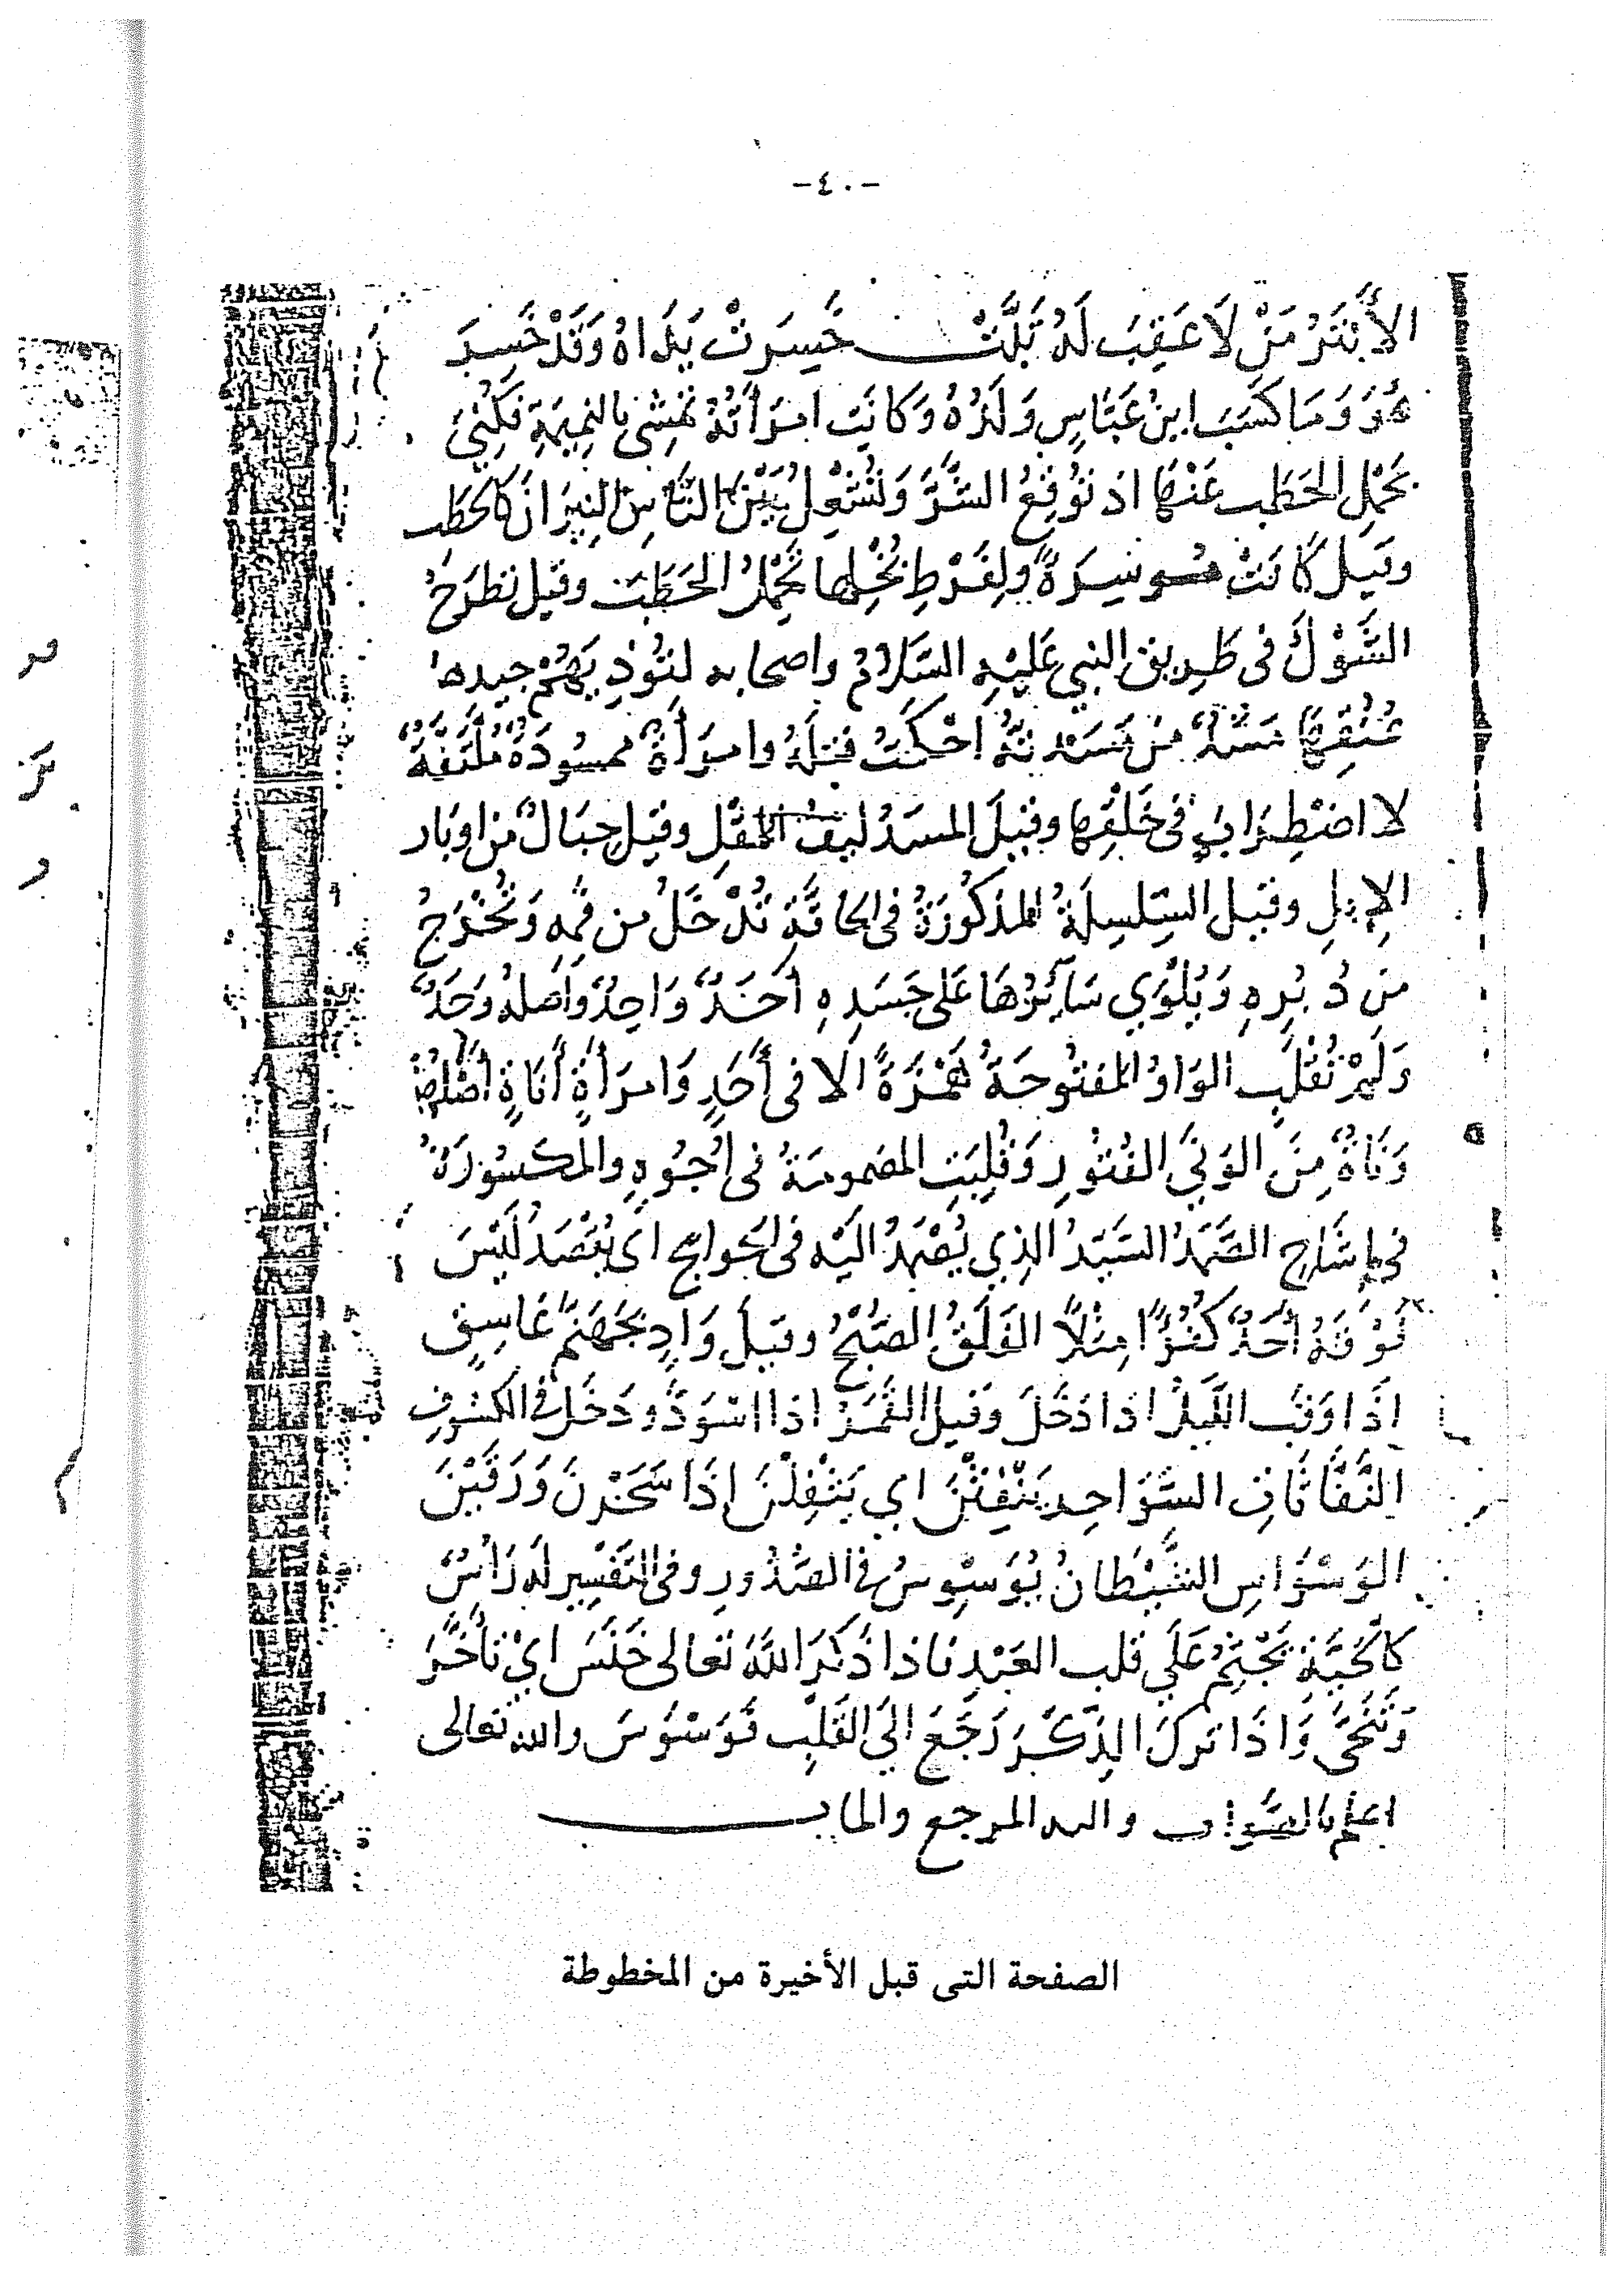 -٤٠-
الأَبْتَرُ مَنْ لَا عَقِبَ لَهُ تَبَّتْ خَسِرَتْ يَدَاهُ وَقَدْ خَسِرَ
هُوَ وَمَا كَسَبَ ابنُ عَبَّاسٍ وَلَدُهُ وَكَانَت امرَأَتُهُ تمْشِى بالنمِيمَةِ فَكُنِيَ
بحَمْلِ الحَطَبِ عَنْهَا اذ تُوقِعُ الشَّرَّ وَتُشْعِلُ بَيْنَ النَّاسِ النِيرَانَ كالحَطَب
وقيل كَانَتْ مُوسِرَةً ولِفَرْطِ بُخْلِها تَحْمِلُ الحَطَبَ وقيل تطرَحُ
الشَّوْكَ فى طَرِيق النبي عَلَيْهِ السَّلَامُ واصحابه لتُؤذِيَهُمْ جيدها
عُنُقِهَا مَسَدٌ مِن مَسَدتُهُ احْكَمْتُ فتلَهُ وامرَأَةٌ ممسُودَةٌ مُلْتَفَّةٌ
لا اضْطِرَابَ فى خَلْقِهَا وقيلَ المسَدُ ليفُ المُقْلِ وقيل حِبَالٌ من اوبَار
الإِبِلِ وقيل السِّلسِلَةُ المذكُورَةُ فى الحاقَّةِ تُدْخَلُ من فمِهِ وَتُخْرَجُ
من دُبُرِهِ وَيُلْوَي سَآئرُهَا عَلى جَسَدِهِ أَحَدٌ وَاحِدٌ وَاصلُهُ وَحَدٌ
وَلَمْ تُقْلَبِ الوَاوُ المفتُوحَةُ هَمْزَةً الا فى أَحَدٍ وَامرَأَةٍ أَنَاةٍ أَصْلُهُ
وَنَاةٌ مِنَ الوَنَى الفُتُورِ وَقُلِبَتِ المضمومَةُ فى اُجُوهٍ والمكسُورَةُ
فى إشَاحٍ الصَّمَدُ السَّيِّدُ الذِي يُصْمَدُ اليْه فى الحوائج اى يُقْصَدُ لَيْسَ
فَوْقَهُ أَحَدٌ كُفُؤًا مِثْلًا الفَلَقُ الصُّبْحُ وقيلَ وَادٍ بجَهَنمَ غَاسِقٍ
اذَا وَقَبَ اللَّيلُ اذا دَخَلَ وقيل القَمَرُ اذا اسْوَدَّ ودَخَل فى الكسُوفِ
النَّفَّاثَاتِ السَّوَاحِر يَنْفِثْنَ اي يَتْفِلْنَ اذَا سَحَرْنَ وَرَقَيْنَ
الوَسْوَاسِ الشَّيْطانُ يُوَسْوِسُ فى الصُّدُورِ وفى التفْسِير لَهُ رَأْسٌ
كالحَيَّةِ يَجْثِمُ عَلَي قلب العَبْدِ فَاذا ذَكَرَ اللَّهَ تعَالى خَنَسَ ايْ تأَخَّرَ
وَتَنَحَّى وَاذَا تركَ الذِّكْرَ رَجَعَ الَى القَلْبِ فَوَسْوَسَ والله تعَالى
اعلم بالصَّوَاب واليه المرجع والمآب
الصفحة التى قبل الأخيرة من المخطوطة